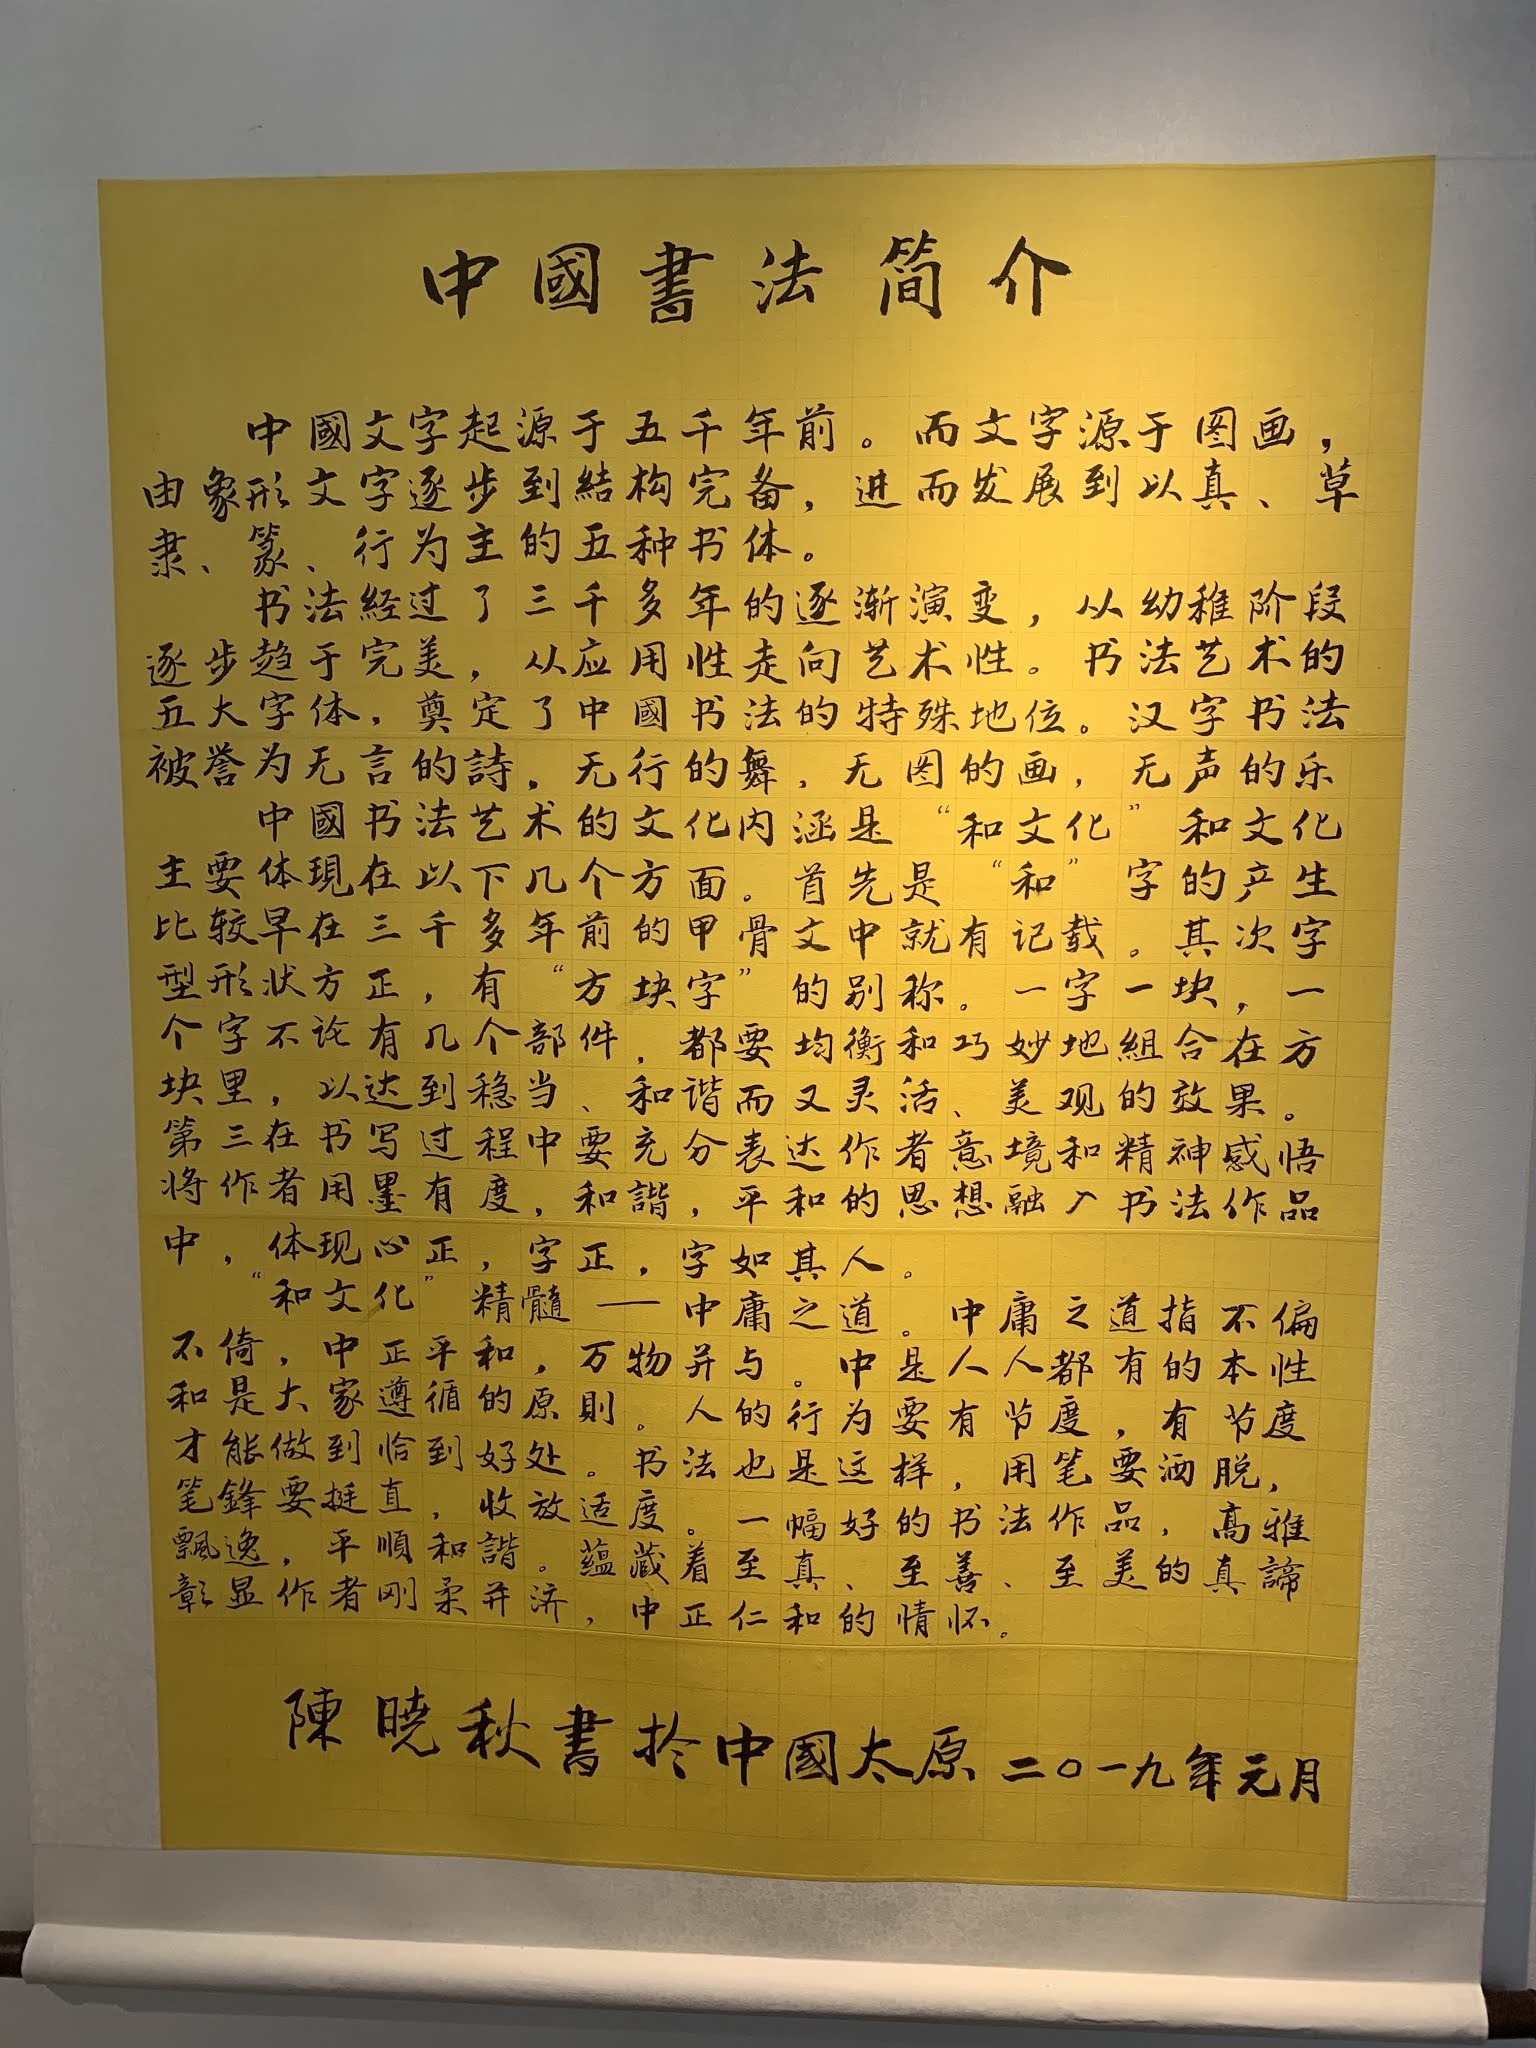 中國書法简介
中國文字起源于五千年前。而文字源于图画，
由象形文字逐步到結构完备，进而发展到以真、草
隶、篆、行为主的五种书体。
书法経过了三千多年的逐渐演变，从幼稚阶段
逐步趋于完美，从应用性走向艺术性。书法艺术的
五大字体，奠定了中國书法的特殊地位。汉字书法
被誉为无言的詩，无行的舞，无图的画，无声的乐
中國书法艺术的文化内涵是“和文化”和文化
主要体現在以下几个方面。首先是“和”字的产生
比较早在三千多年前的甲骨文中就有记载。其次字
型形状方正，有“方块字”的别称。一字一块，一
个字不论有几个部件，都要均衡和巧妙地組合在方
块里，以达到稳当、和谐而又灵活、美观的效果。
第三在书写过程中要充分表达作者意境和精神感悟
将作者用墨有度，和諧，平和的思想融入书法作品
中，体现心正，字正，字如其人。
“和文化”精髓——中庸之道。中庸之道指不偏
不倚，中正平和，万物并与。中是人人都有的本性
和是大家遵循的原則。人的行为要有节度，有节度
才能做到恰到好处。书法也是这样，用笔要洒脱，
笔鋒要挺直，收放适度。一幅好的书法作品，高雅
飄逸，平順和諧。蕴藏着至真、至善、至美的真諦
彰显作者刚柔并济，中正仁和的情怀。
陳曉秋書於中國太原二〇一九年元月